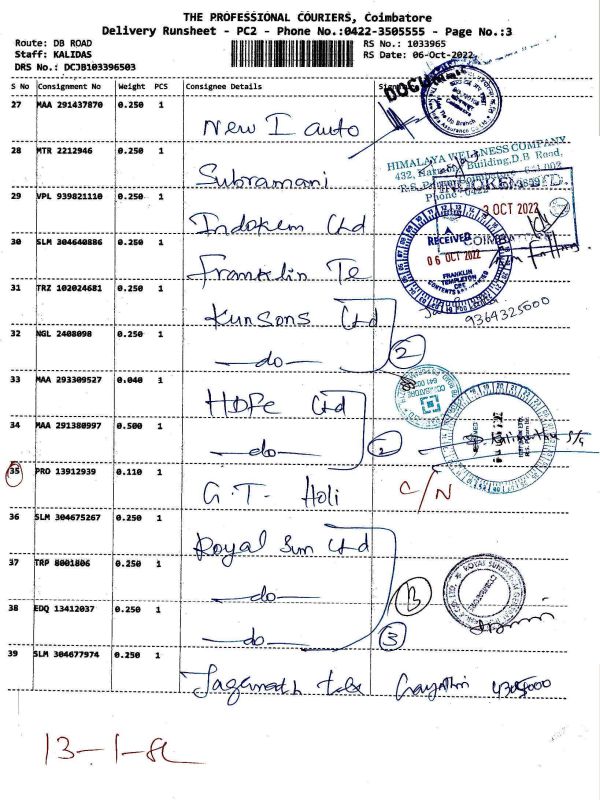 THE PROFESSIONAL COURIERS, Coimbatore
Delivery Runsheet - PC2 - Phone No.:0422-3505555 - Page No.:3
Route: DB ROAD
RS No.: 1033965
Staff: KALIDAS
RS Date: 06-Oct-2022
DRS No.: DCJB103396503
S No Consignment No Weight PCS Consignee Details
27 MAA 291437870 0.250 1 New I auto
28 MTR 2212946 0.250 1 Subramani
HIMALAYA WELLNESS COMPANY
29 VPL 939821110 0.250 1 Indokem Ltd
OCT 2022
30 SLM 304640886 0.250 1 Franklin Te
RECEIVED
06 OCT 2022
FRANKLIN
TEMPLETON
31 TRZ 102024681 0.250 1 Kunsons Ltd
9364325000
32 NGL 2408098 0.250 1 do
2
33 MAA 293309527 0.040 1 HDFC Ltd
34 MAA 291380997 0.500 1 do
2
35 PRO 13912939 0.110 1 G.T. Holi
C/N
36 SLM 304675267 0.250 1 Royal Sun Ltd
37 TRP 8001806 0.250 1 do
38 EDQ 13412037 0.250 1 do
3
39 SLM 304677974 0.250 1 Gayathri